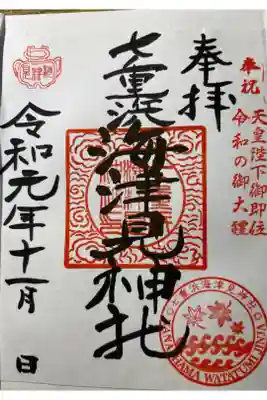 奉拝
奉祝
天皇陛下御即位
令和の御大禮
七重浜海津見神社
令和元年十一月 日
七重浜海津見神社
NANAEHAMA WATATUMI JINJYA